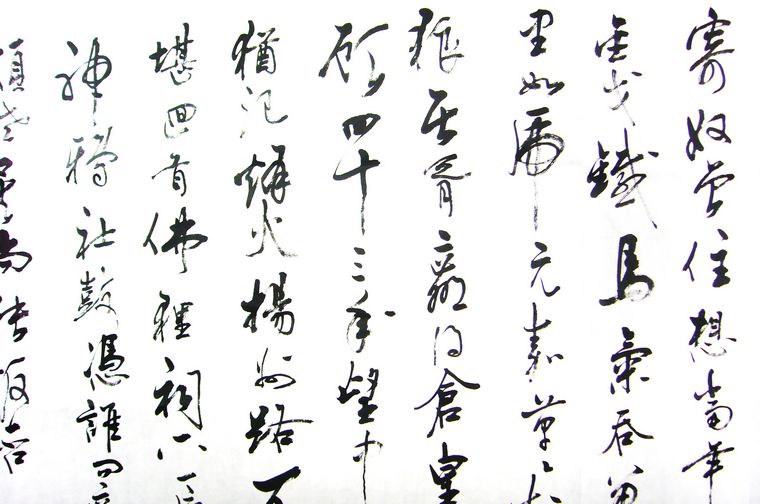 寄奴曾住想當年
金戈鐵馬氣吞萬
里如虎元嘉草々
狼居胥贏得倉皇
顧四十三年望中
猶記烽火楊州路可
堪回首佛狸祠下一
神鴉社鼓憑誰問廉
頗老矣尚能飯否